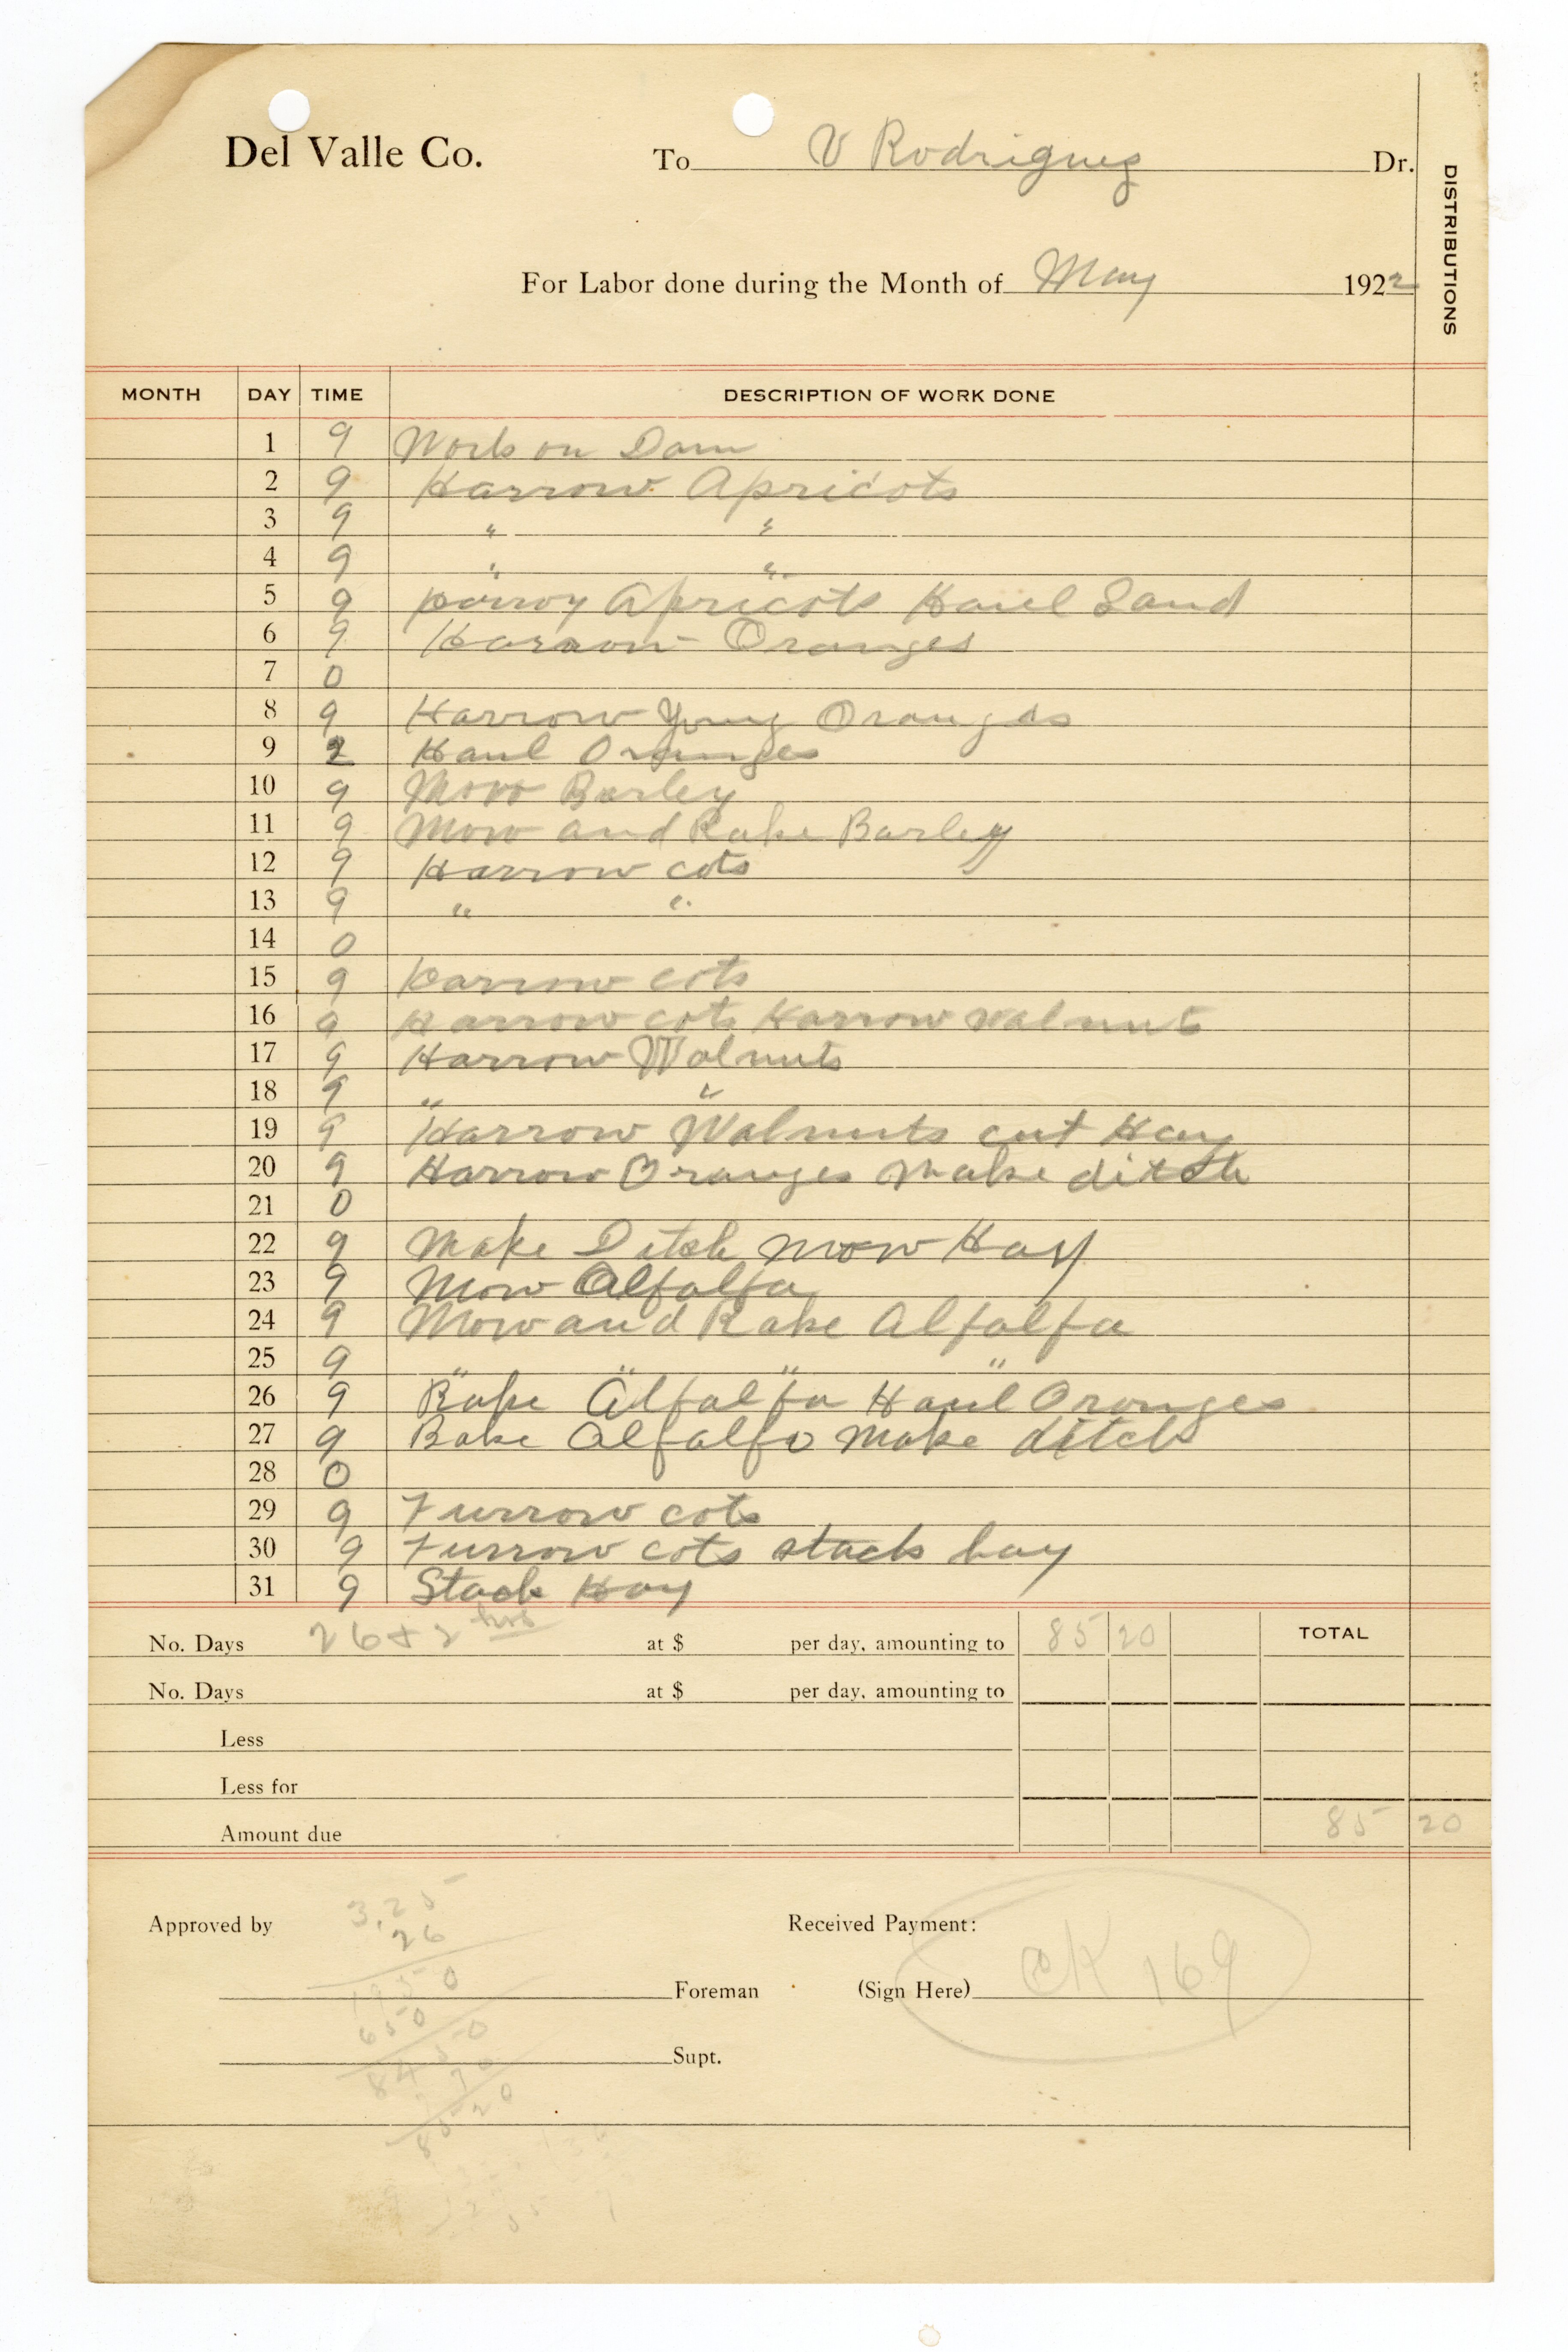 Del Valle Co. To V Rodriguez Dr.
DISTRIBUTIONS
For Labor done during the Month of May 1922
MONTH DAY TIME DESCRIPTION OF WORK DONE
1 9 Work on Dam
2 9 Harrow Apricots
3 9 " "
4 9 " "
5 9 Apricots Haul Sand
6 9 Harrow Oranges
7 0
8 9 Harrow Young Oranges
9 2 Haul Oranges
10 9 Mow Barley
11 9 Mow and Rake Barley
12 9 Harrow cots
13 9 " "
14 0
15 9 Harrow cots
16 9 Harrow cots Harrow walnuts
17 9 Harrow Walnuts
18 9 " "
19 9 Harrow Walnuts cut Hay
20 9 Harrow Oranges Make ditch
21 0
22 9 Make Ditch mow Hay
23 9 Mow Alfalfa
24 9 Mow and Rake Alfalfa
25 9 " " " "
26 9 Rake Alfalfa Haul Oranges
27 9 Rake Alfalfa Make ditch
28 0
29 9 Furrow cots
30 9 Furrow cots stack hay
31 9 Stack Hay
No. Days 26 & 2 hrs at $ per day, amounting to 85 20 TOTAL
No. Days at $ per day, amounting to
Less
Less for
Amount due 85 20
3.25
Approved by Received Payment:
26
1950
Foreman (Sign Here) CK 169
650
8450
Supt.
70
8520